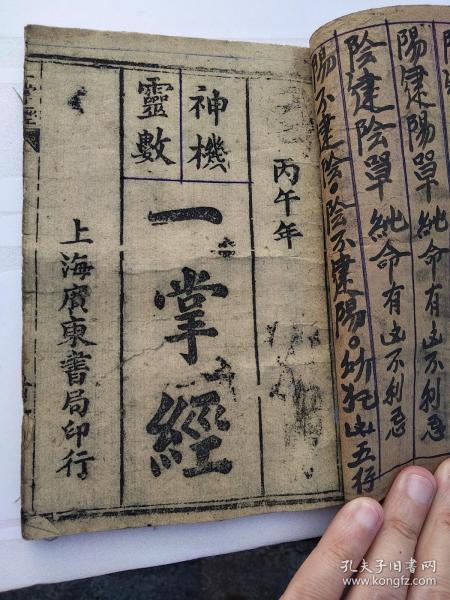 陽建陽單 純命有凶不利忌
陰建陰單 純命有凶不利忌
陽不建陰。陰不建陽。幼犯凶五行
丙午年
神機
靈數
一掌經
上海廣東書局印行
孔夫子旧书网
www.kongfz.com